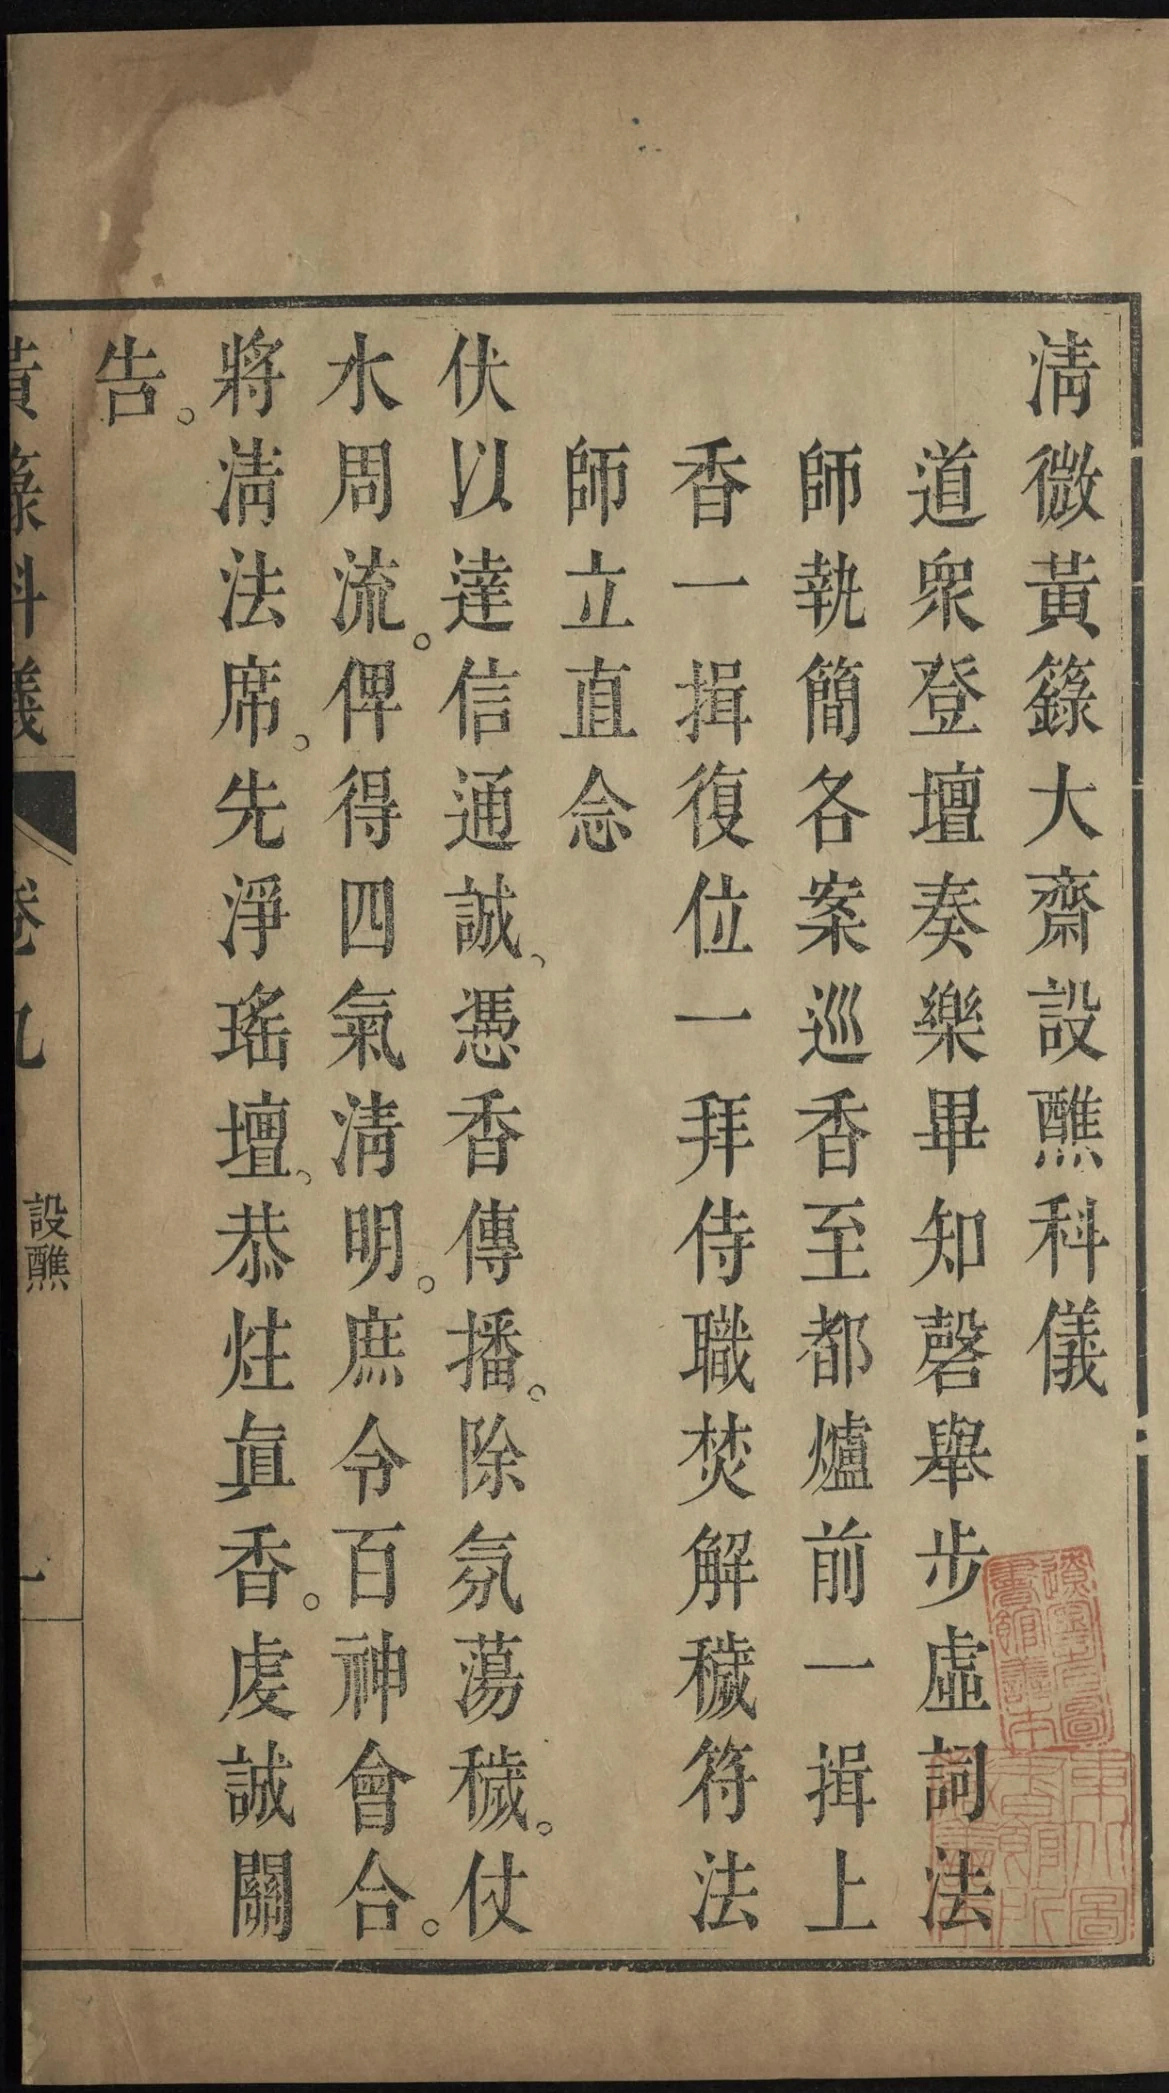 清微黃籙大齋設醮科儀
道衆登壇奏樂畢知磬舉步虛詞法
師執簡各案巡香至都爐前一揖上
香一揖復位一拜侍職焚解穢符法
師立直念
伏以達信通誠、憑香傳播。除氛蕩穢。仗
水周流。俾得四氣清明。庶令百神會合。
將清法席。先淨瑤壇、恭炷眞香。虔誠關
告。
黃籙科儀 卷九 設醮 一